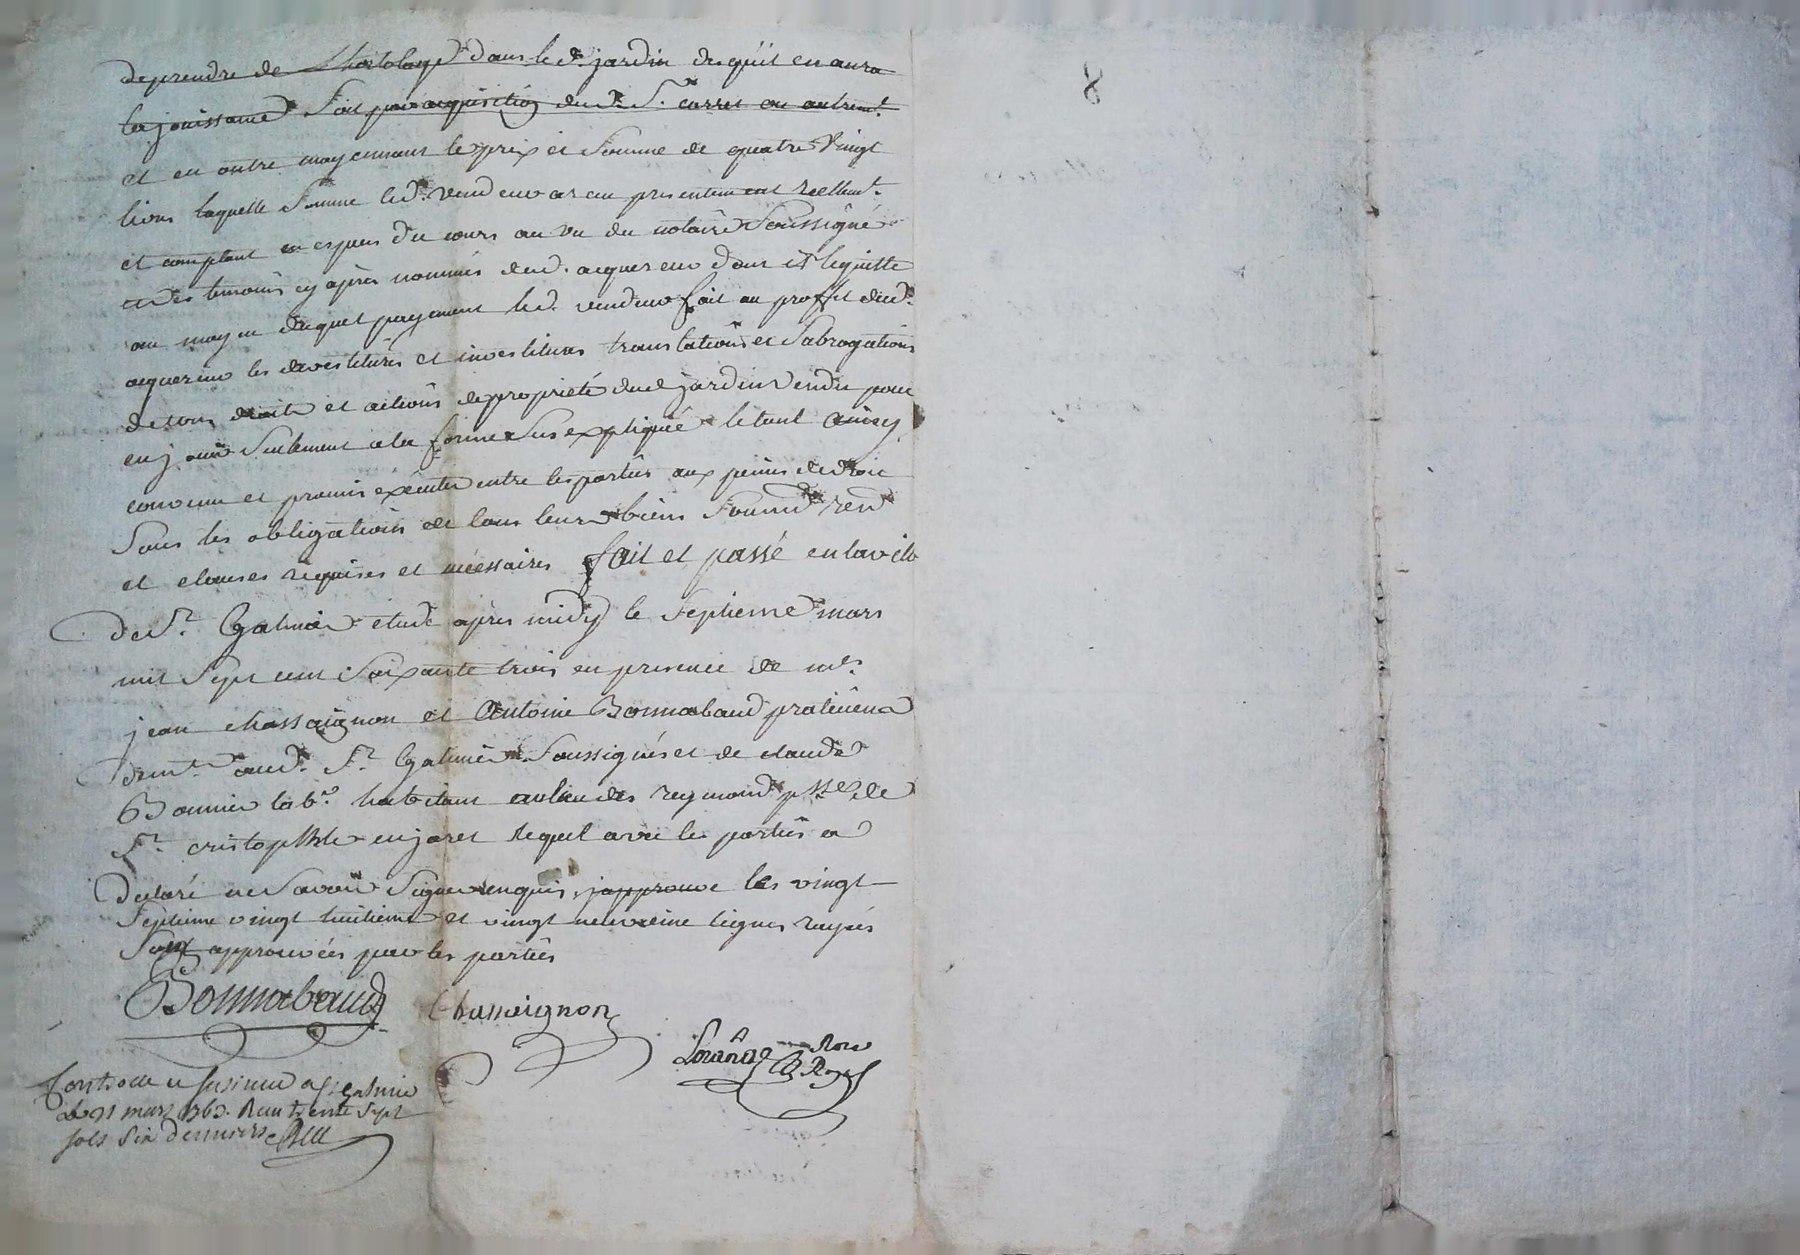 de prendre de l'hortolage dans led. jardin des qu'il en aura
la jouissance soit par acquisition dud. Sr. carret ou autremt.
et en outre moyennant le prix et somme de quatre vingt
livres laquelle somme led. vendeur a reçu presentement reellemt.
et comptant en especes du cours au vu du notaire soussigné
et des temoins cy après nommés dud. acquereur dont il le quitte
au moyen duquel payement led. vendeur fait au proffit dud.
acquereur les devestitures et investitures translations et subrogations
de tous droits et actions de proprieté dud jardin vendu pour
en jouir seulement a la forme sus expliquée le tout ainsy
convenu et promis éxécuter entre les parties aux peines de droit
sous les obligations de tous leurs biens soumn. ren.
et clauses requises et nécéssaires fait et passé en la ville
de St. Galmier etude après midy le septieme mars
mil sept cent soixante trois en presence de mes.
jean chassaignon et Antoine Bonnabaud praticiens
demt. aud. St. Galmier soussignés et de claude
Bonnier labr. habitant au lieu des reymond psse. de
St. cristophle en jarest lequel avec les parties a
declaré ne savoir signer enquis, japprouve les vingt
septieme vingt huitieme et vingt neuvieme lignes rayés
sont approuvées par les parties
Bonnabaud Chassaignon
Not. Royal
Controllé et insinué a St. galmier
le 21 mars 1763. Reçu trente sept
sols six denniers
8